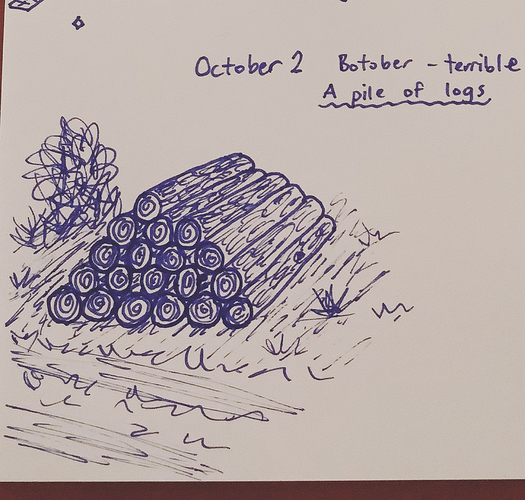 October 2 Botober - terrible
A pile of logs